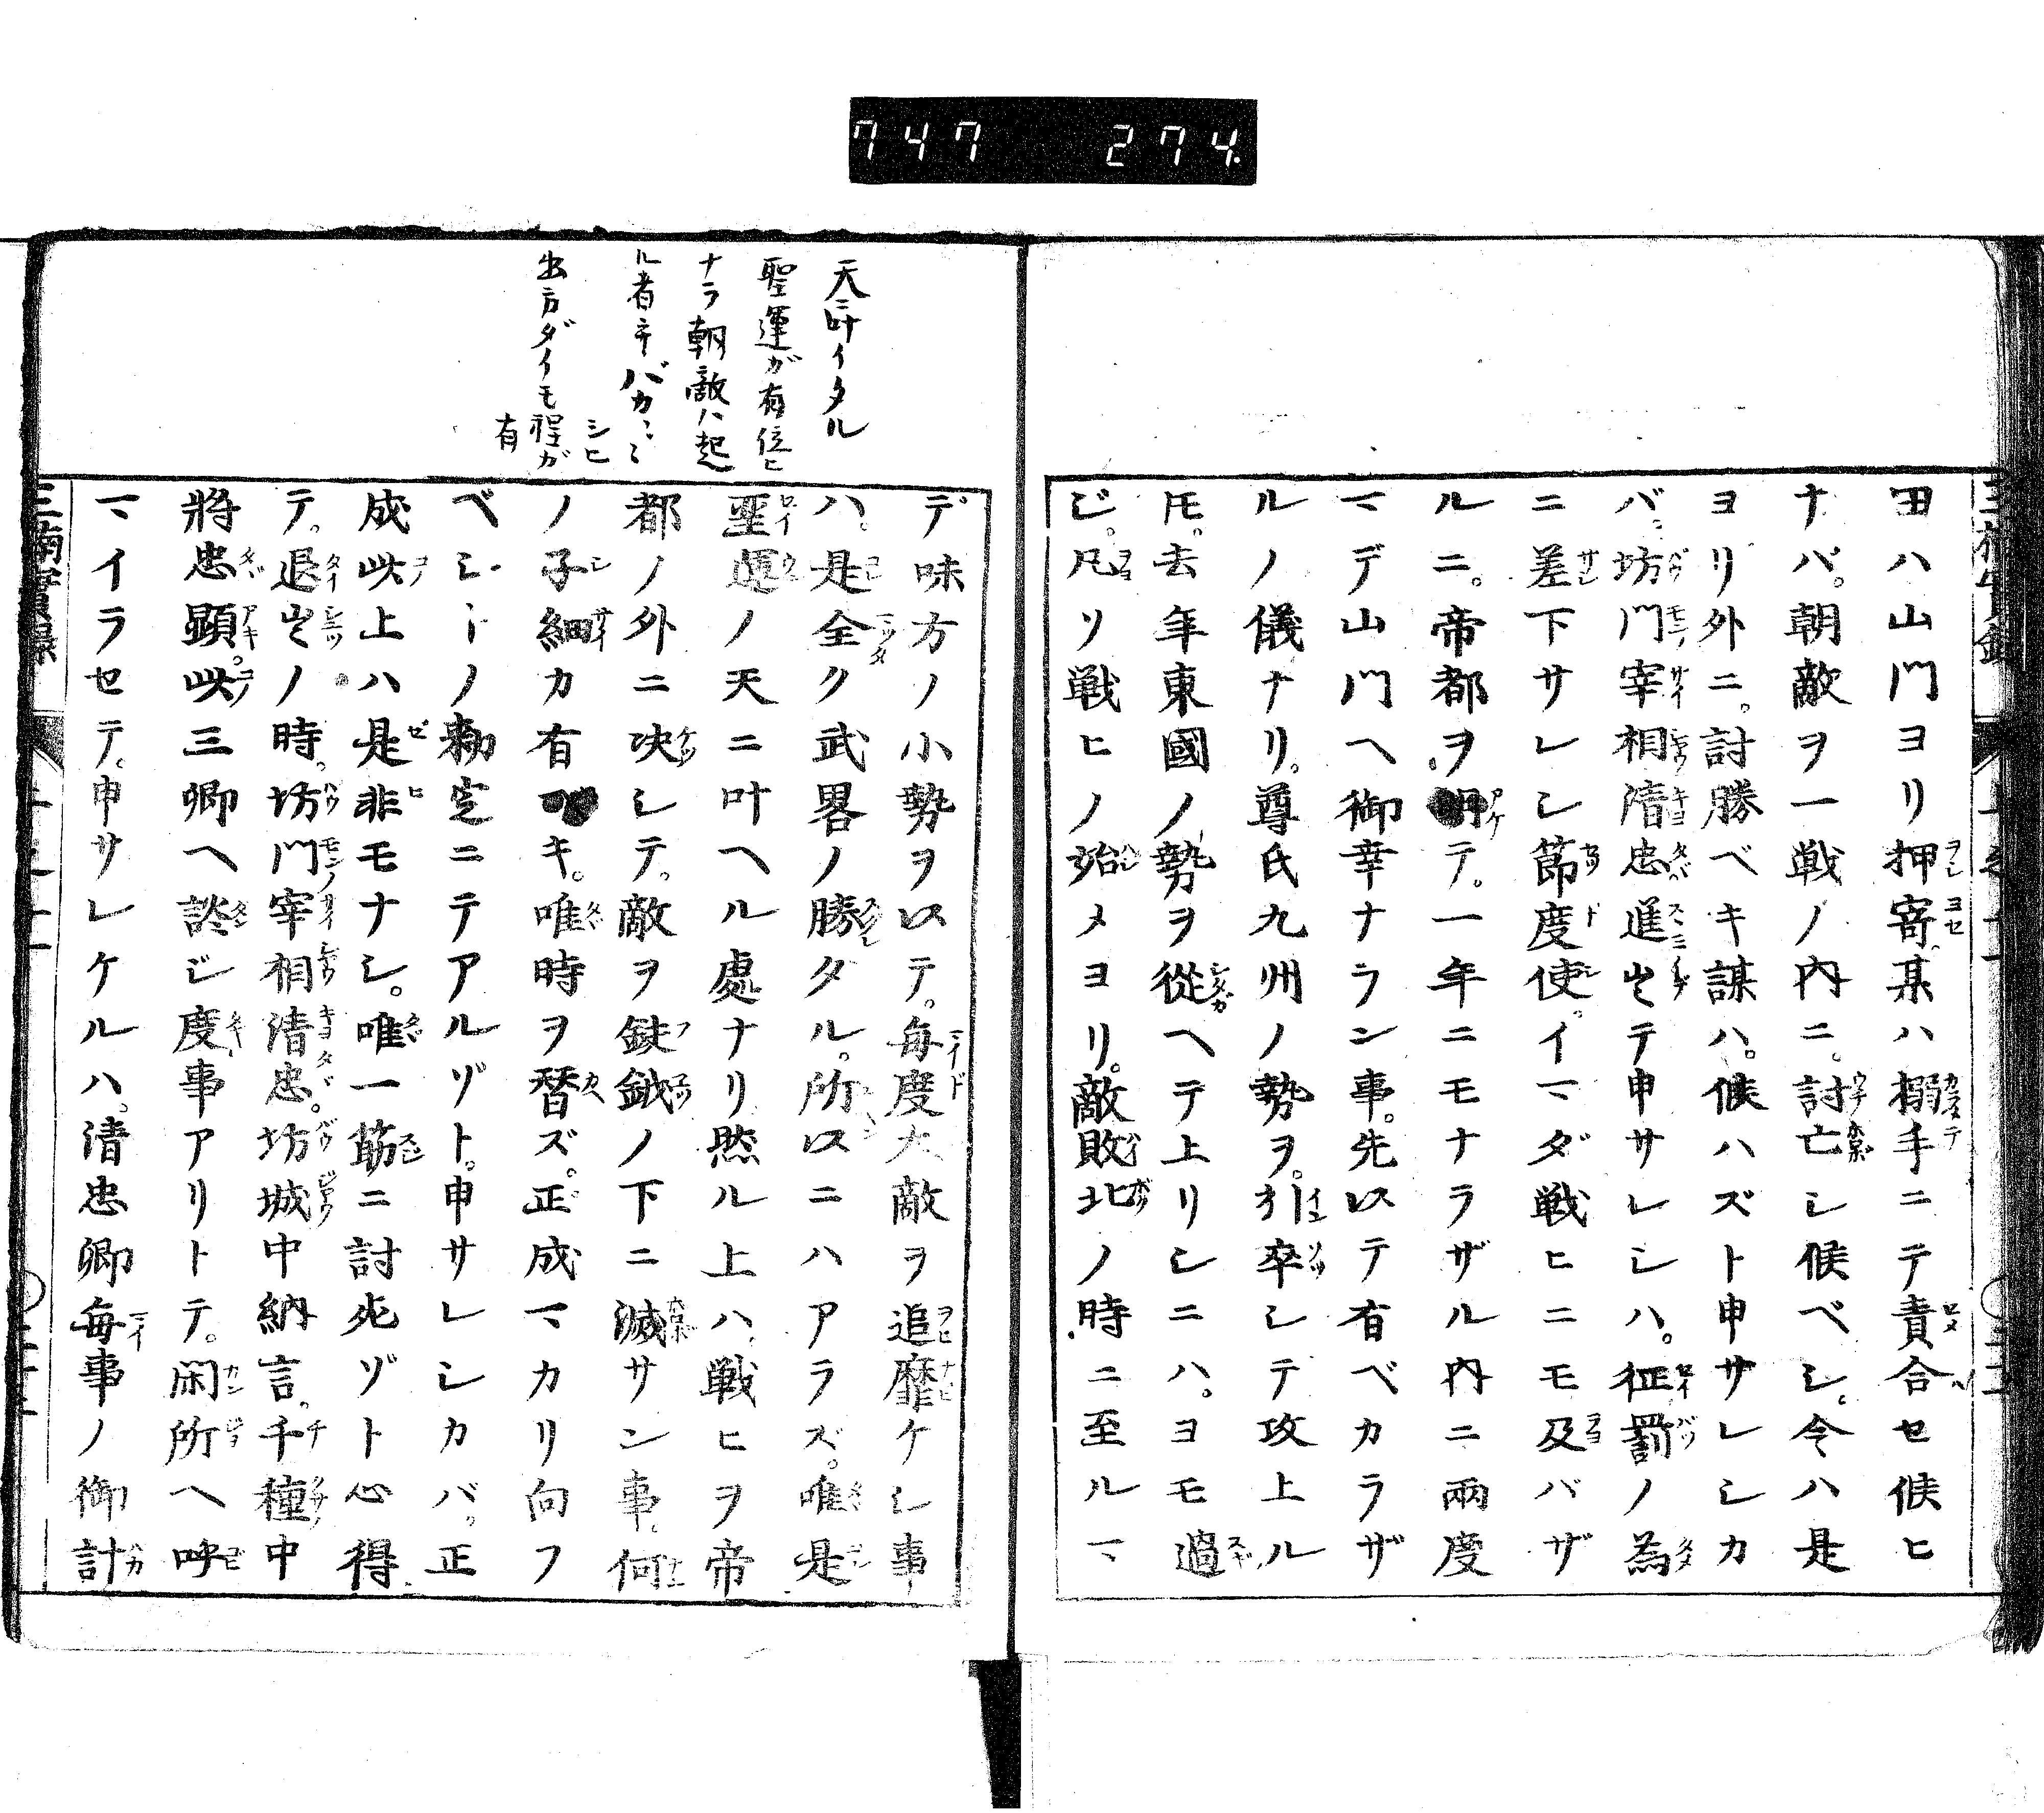 747 274
田ハ山門ヨリ押寄。某ハ搦手ニテ責合セ候ヒ
ナバ。朝敵ヲ一戦ノ内ニ。討亡シ候ベシ。今ハ是
ヨリ外ニ。討勝ベキ謀ハ。候ハズト申サレシカ
バ。坊門宰相清忠進出テ申サレシハ。征罰ノ為
ニ差下サレシ節度使。イマダ戦ヒニモ及バザ
ルニ。帝都ヲ明テ。一年ニモナラザル内ニ兩度
マデ山門ヘ御幸ナラン事。先以テ有ベカラザ
ルノ儀ナリ。尊氏九州ノ勢ヲ。引卒シテ攻上ル
𪜈。去年東國ノ勢ヲ從ヘテ上リシニハ。ヨモ過
ジ。凡ソ戦ヒノ始メヨリ。敵敗北ノ時ニ至ルマ
デ味方ノ小勢ヲ以テ。毎度大敵ヲ追靡ケシ事
ハ。是全ク武畧ノ勝タル。所以ニハアラズ。唯是
聖運ノ天ニ叶ヘル處ナリ然ル上ハ。戦ヒヲ帝
都ノ外ニ决シテ。敵ヲ鈇鉞ノ下ニ滅サン事。何
ノ子細カ有可キ。唯時ヲ替ズ。正成マカリ向フ
ベシトノ勅定ニテアルゾト。申サレシカバ。正
成此上ハ是非モナシ。唯一筋ニ討死ゾト心得
テ。退出ノ時。坊門宰相清忠。坊城中納言。千種中
將忠顕。此三卿ヘ談ジ度事アリトテ。閑所ヘ呼
マイラセテ。申サレケルハ。清忠卿毎事ノ御計
天ニ叶イタル
聖運ガ有位ヒ
ナラ朝敵ハ起
ル者
バカ
シヒ
出方ダイモ程ガ
有